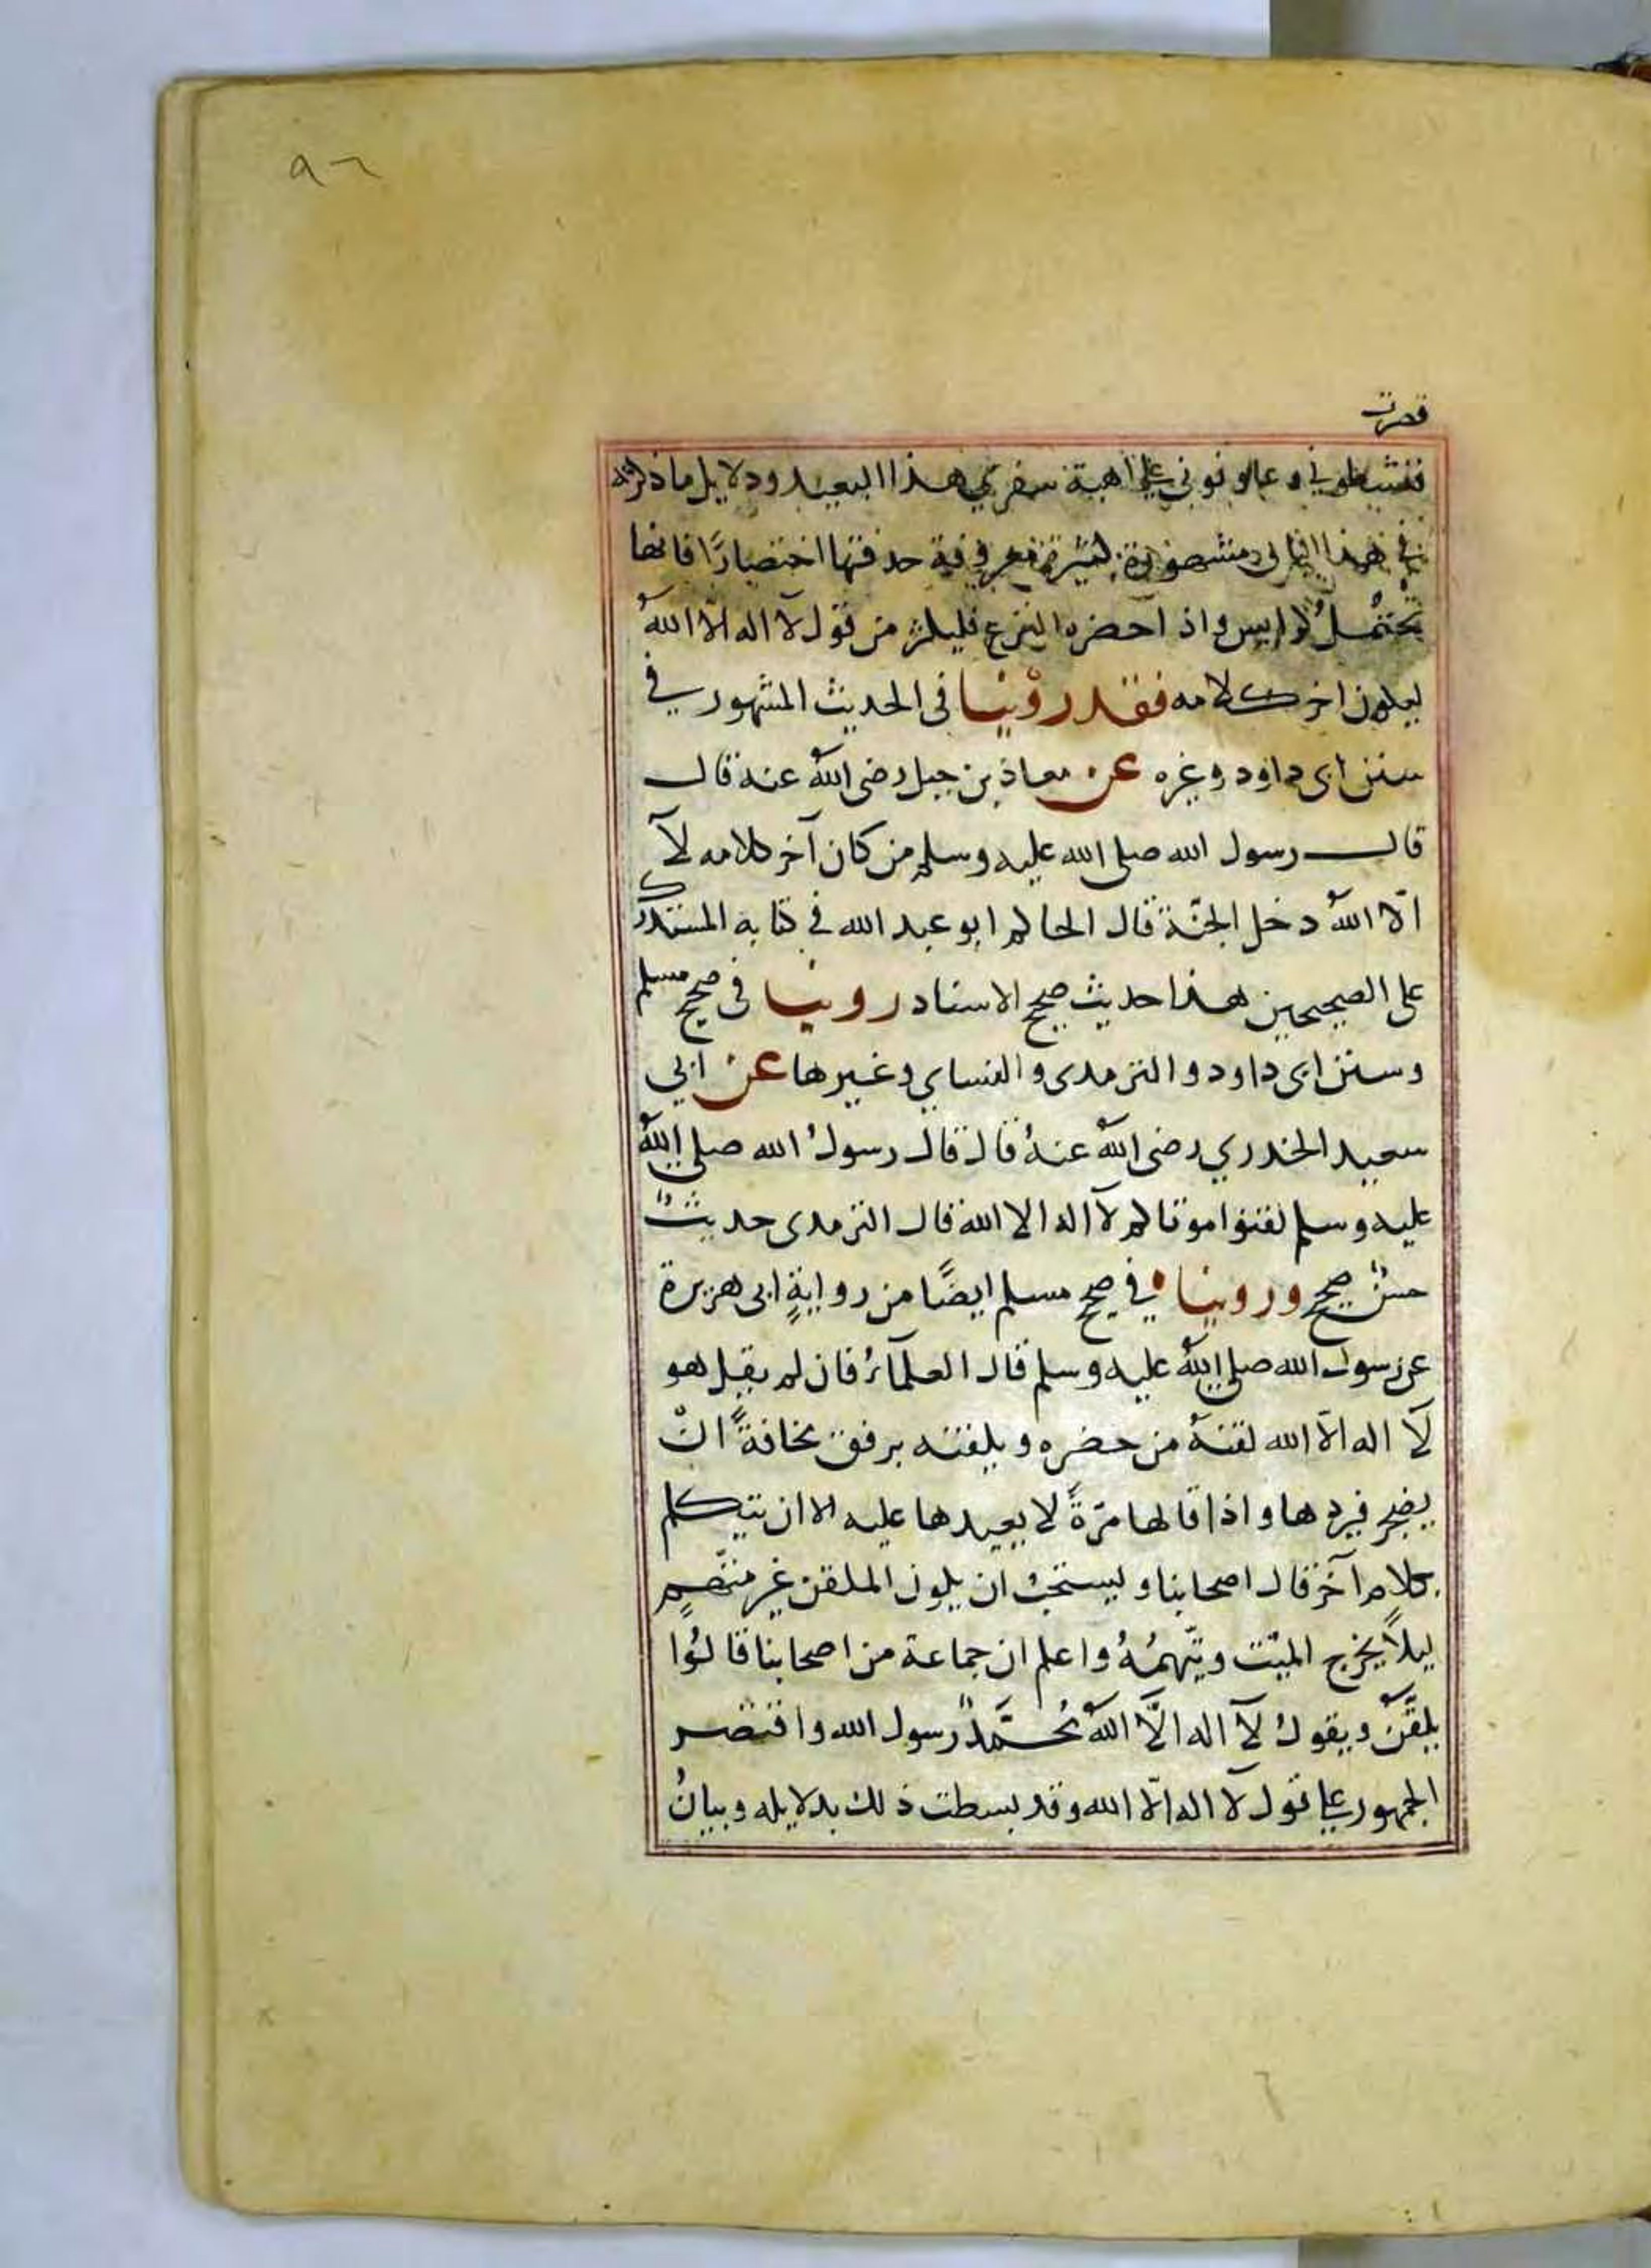 ٩٦
قصرت
فنشطوني وعاونوني على اهبة سفري هذا البعيد ودلايل ما ذكرته
في هذا الباب مشهورة كثيرة معروفة حذفتها اختصارًا فانها
تحتمل كراريس واذا حضره النزع فليكثر من قول لآ اله الّا اللهُ
ليكون اخر كلامه فقد روينا فى الحديث المشهور في
سنن ابى داود وغيره عن معاذ بن جبل رضى اللهُ عنه قال
قال رسول الله صلى الله عليه وسلم من كان آخر كلامه لآ
الّا اللهُ دخل الجنّة قال الحاكم ابو عبد الله في كتابه المستدرك
على الصحيحين هذا حديث صحيح الاسناد روينا فى صحيح مسلم
وسنن ابى داود والترمدى والنساي وغيرها عن ابي
سعيد الخدري رضى اللهُ عنهُ قال قال رسولُ الله صلى اللهُ
عليه وسلم لقنوا موتاكم لآ اله الا الله قال الترمدى حديثٌ
حسنٌ صحيح وروينا في صحيح مسلم ايضًا من روايةِ ابى هريرة
عن رسول الله صلى اللهُ عليه وسلم قال العلمآءُ فان لم يقل هو
لَآ اله الّا الله لقنهُ من حضره ويلقنه برفق مخافةً انْ
يضجر فيردها واذا قالها مرّةً لا يعيدها عليه الا ان يتكلم
بكلام آخر قال اصحابنا ويستحبُ ان يكون الملقن غير متّهم
ليلاً يحرج الميّت ويتّهمُهُ واعلم ان جماعة من اصحابنا قالوُا
يلقّن ويقولُ لَآ اله الَّا اللهُ مُحَمَّدٌ رسول الله واقتصر
الجمهور على قول لا اله الّا الله وقد بسطت ذلك بدلايله وبيانُ